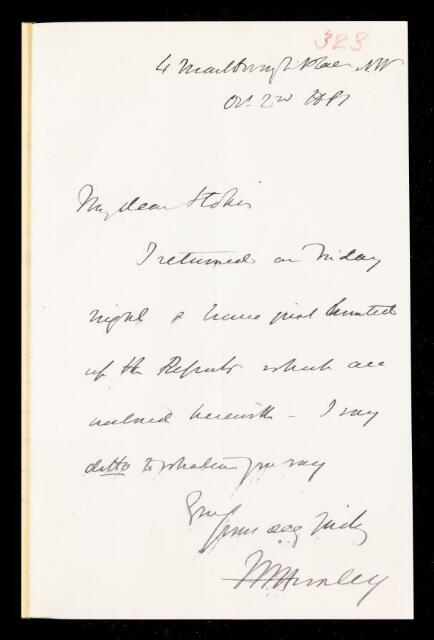 323
4 Marlborough Place N.W
Oct. 2nd 1887
My dear Stokes
I returned on Friday
night & have just hunted
up the Reports which are
enclosed herewith – I say
ditto to whatever you say
Ever
yours very truly
T H Huxley